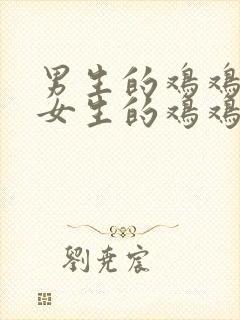 男生的鸡鸡
女生的鸡鸡
劉尭宸